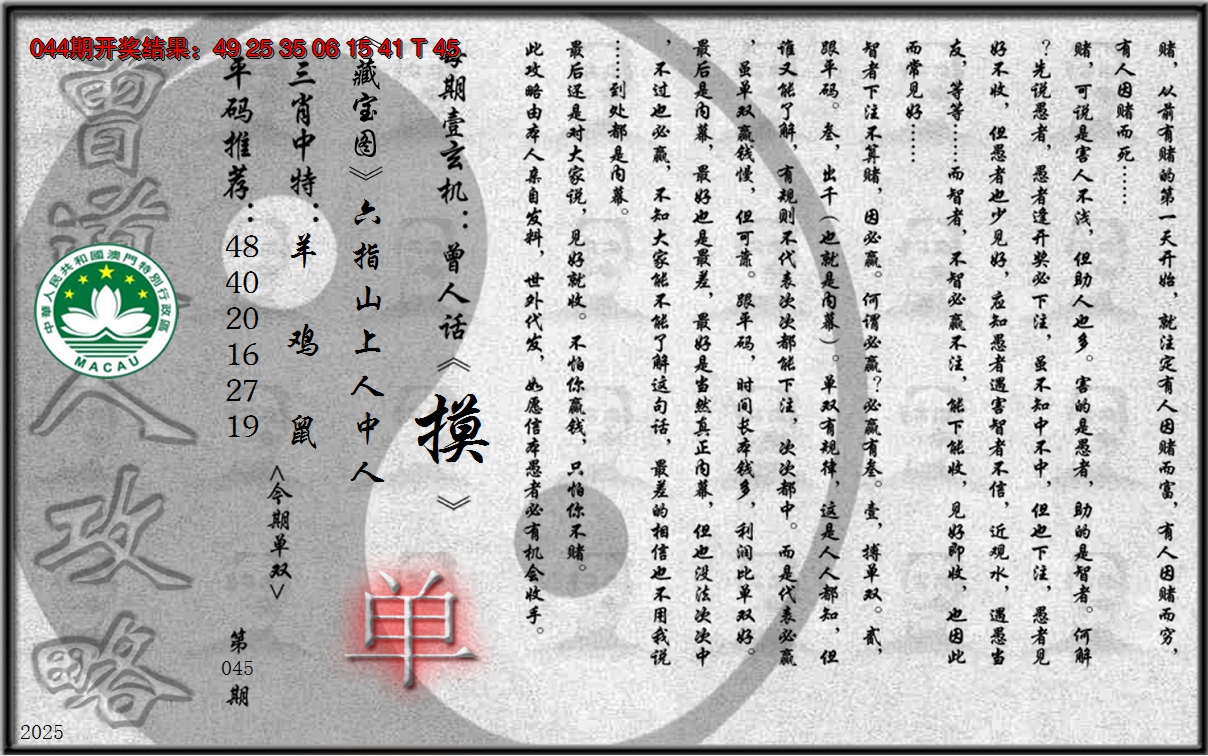 044期开奖结果：49 25 35 06 15 41 T 45
赌，从前有赌的第一天开始，就注定有人因赌而富，有人因赌而穷，
有人因赌而死……
赌，可说是害人不浅，但助人也多。害的是愚者，助的是智者。何解
？先说愚者，愚者逢开奖必下注，虽不知中不中，但也下注，愚者见
好不收，但愚者也少见好，应知愚者遇害智者不信，近观水，遇愚当
友，等等……而智者，不智必赢不注，能下能收，见好即收，也因此
而常见好……
智者下注不算赌，因必赢。何谓必赢？必赢有叁。壹，搏单双。贰，
跟平码。叁，出千（也就是内幕）。单双有规律，这是人人都知，但
谁又能了解，有规则不代表次次都能下注，次次都中。而是代表必赢
，虽单双赢钱慢，但可靠。跟平码，时间长本钱多，利润比单双好。
最后是内幕，最好也是最差，最好是当然真正内幕，但也没法次次中
，不过也必赢，不知大家能不能了解这句话，最差的相信也不用我说
……到处都是内幕。
最后还是对大家说，见好就收。不怕你赢钱，只怕你不赌。
此攻略由本人亲自发料，世外代发，如愿信本愚者必有机会收手。
每期壹玄机：曾人话《摸》
《藏宝图》六指山上人中人
单
三肖中特：羊 鸡 鼠
<今期单双>
平码推荐：48 40 20 16 27 19
第045期
曾道人攻略
中華人民共和國澳門特別行政區
MACAU
2025